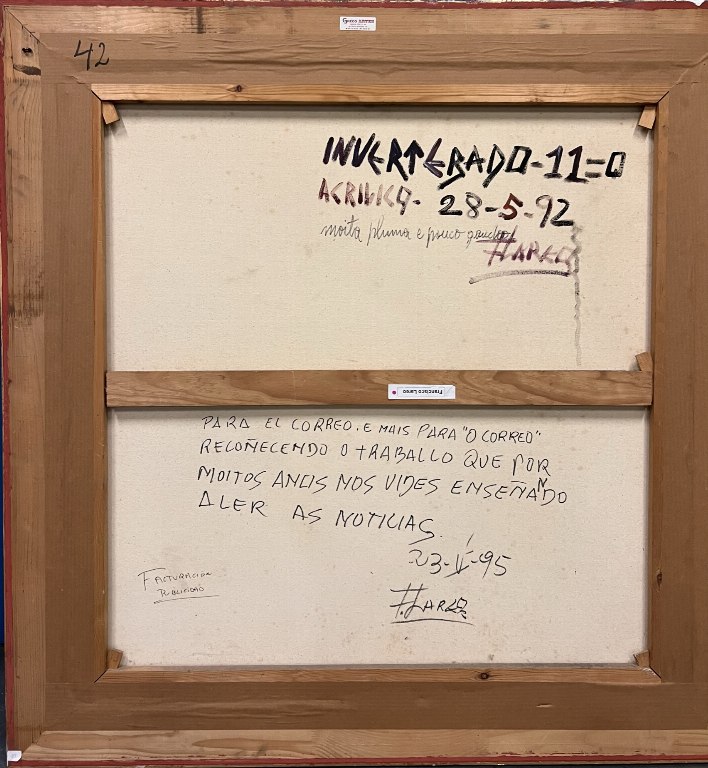 42
INVERTEBRADO-11=0
ACRILICO- 28-5-92
moita pluma e pouco
F. LAREO
Francisco Lareo
PARA EL CORREO. E MAIS PARA "O CORREO"
RECOÑECENDO O TRABALLO QUE POR
MOITOS ANOS NOS VIDES ENSEÑANDO
A LER AS NOTICIAS.
23-V-95
F. LAREO
FACTURACION
PUBLICIDAD